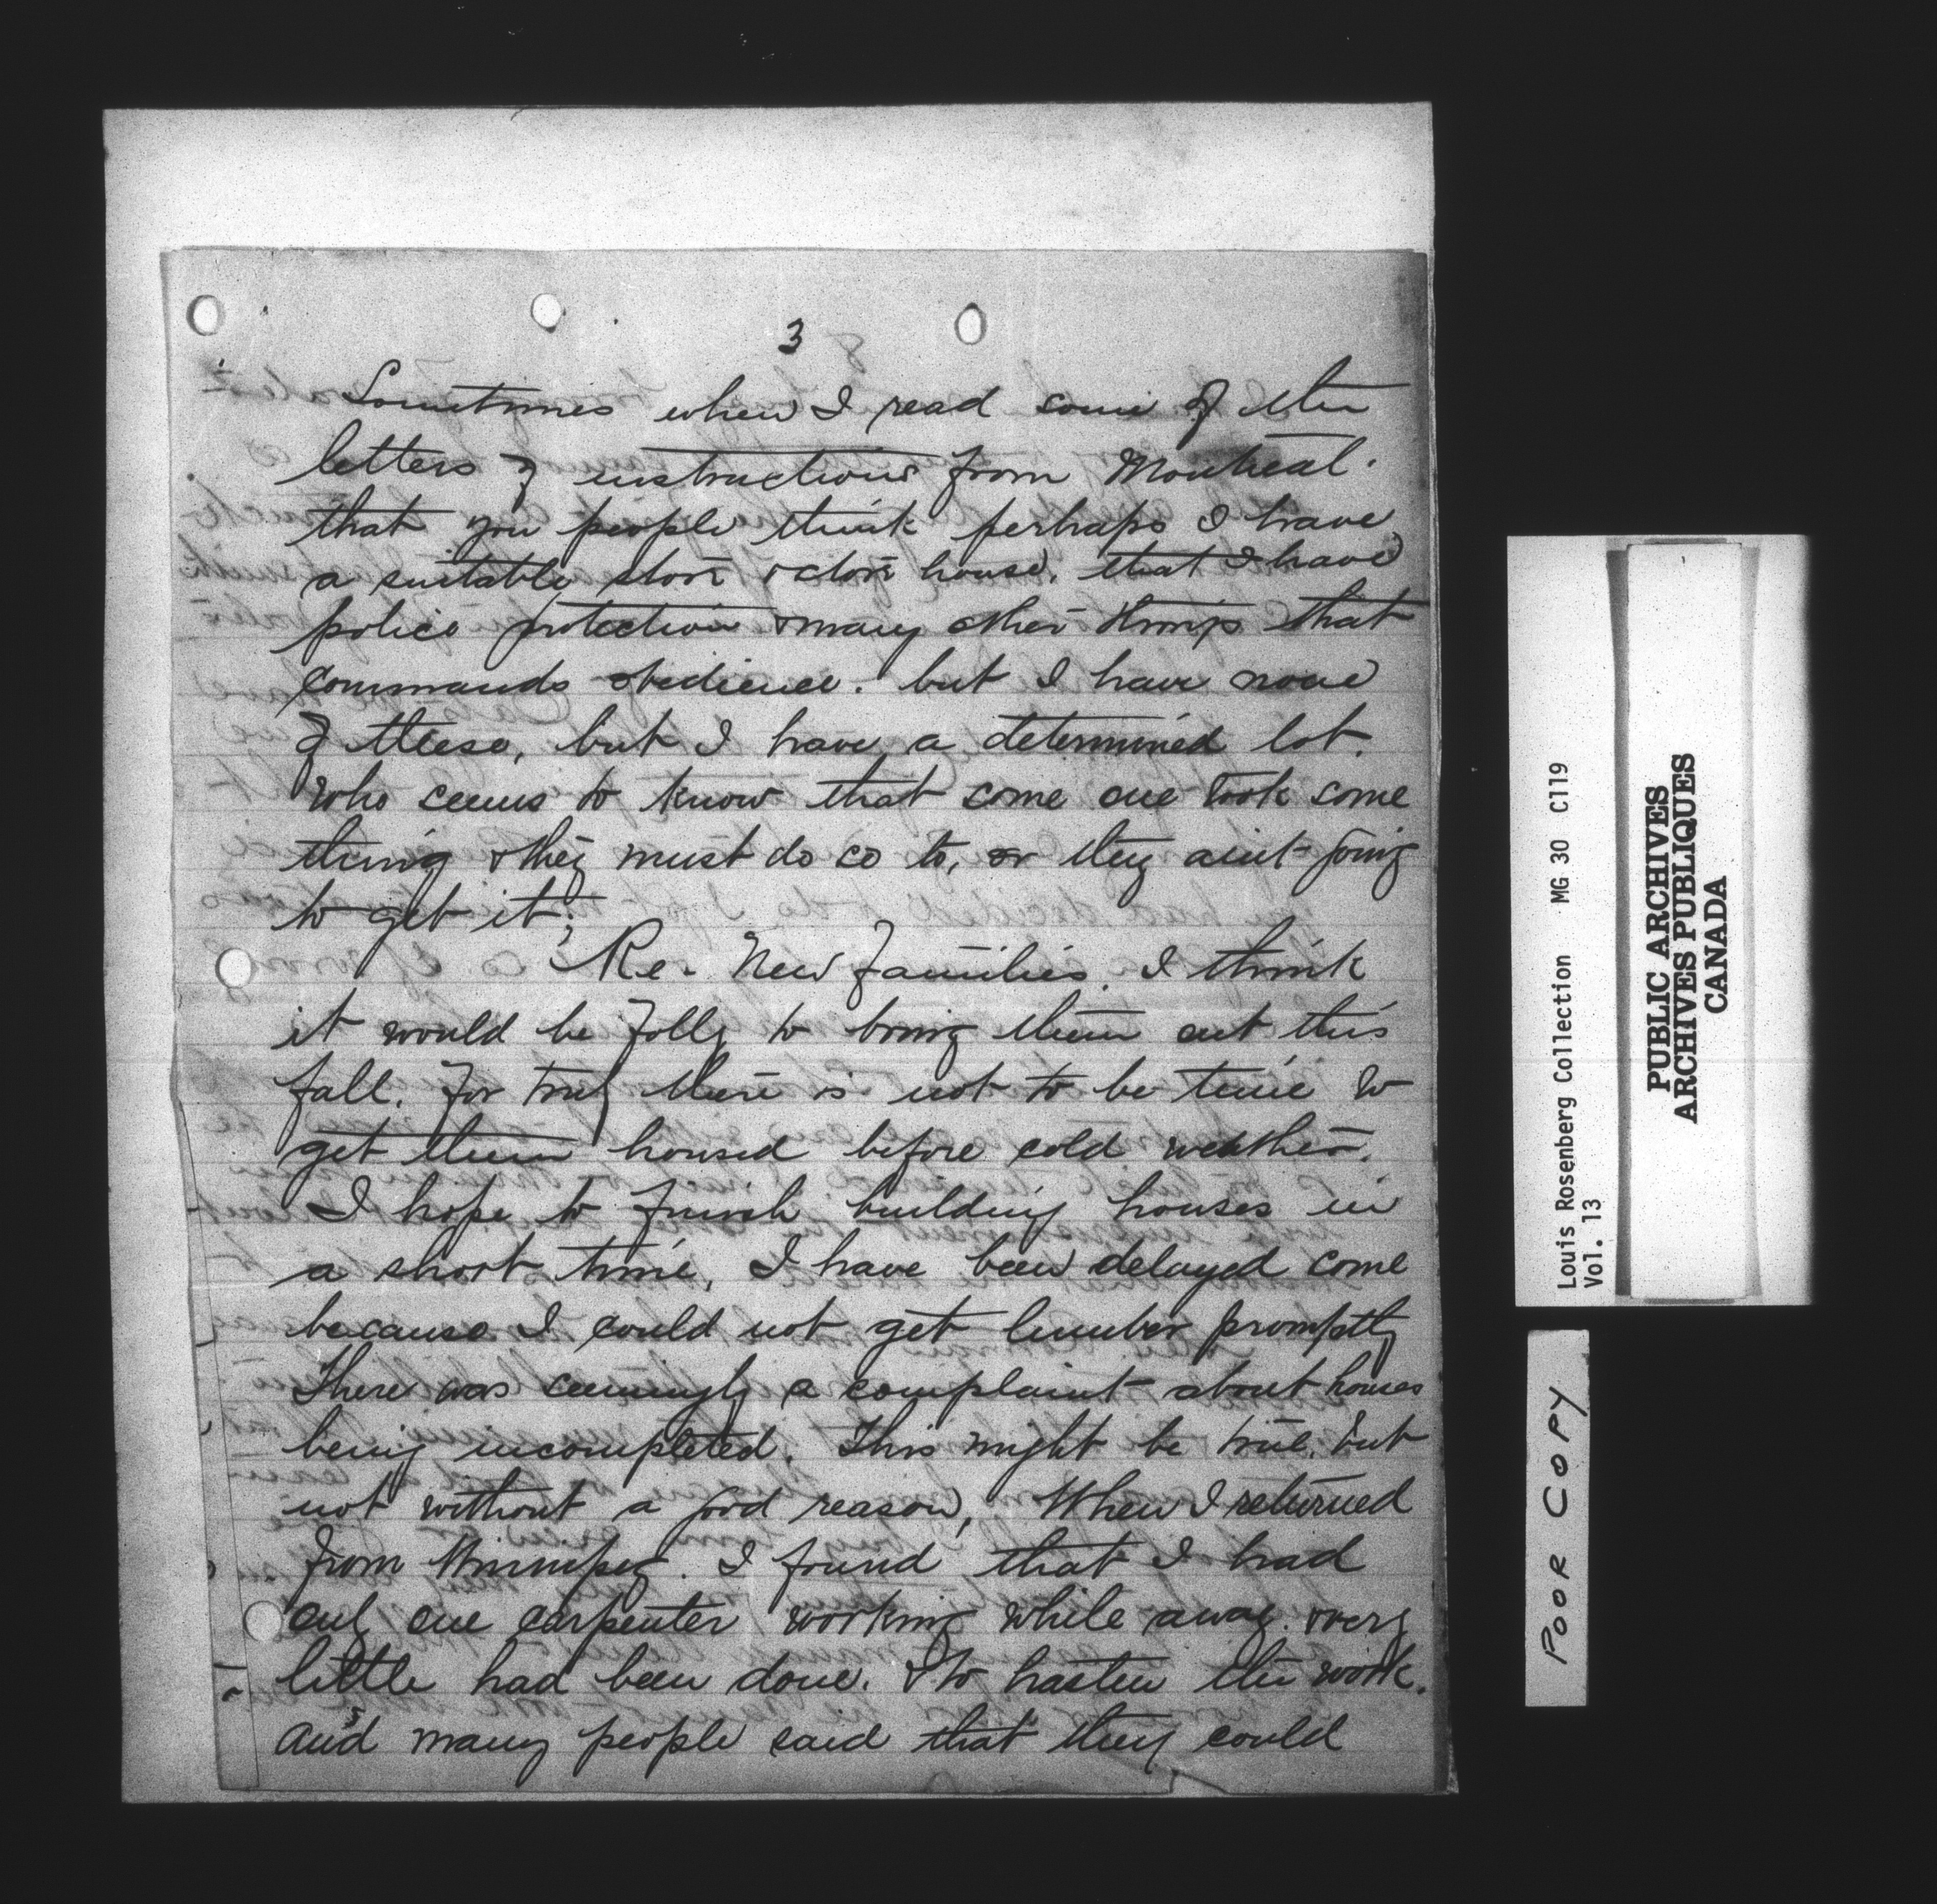 3
Sometimes when I read some of the
letters of instructions from Montreal.
that you people think perhaps I have
a suitable store & store house, that I have
police protection & many other things that
commands obedience. but I have none
of these, but I have a determined lot.
who seems to know that some one took some
thing & they must do so to, or they aint going
to get it.
Re- New families. I think
it would be folly to bring them out this
fall. for truly there is not to be time to
get them housed before cold weather.
I hope to finish building houses in
a short time, I have been delayed some
because I could not get lumber promptly
There was seemingly a complaint about houses
being incompleted. This might be true. but
not without a good reason, When I returned
from Winnipeg. I found that I had
only one carpenter working while away. & very
little had been done. & to hasten the work.
and many people said that they could
Louis Rosenberg Collection MG 30 C119
Vol. 13
PUBLIC ARCHIVES
ARCHIVES PUBLIQUES
CANADA
POOR COPY